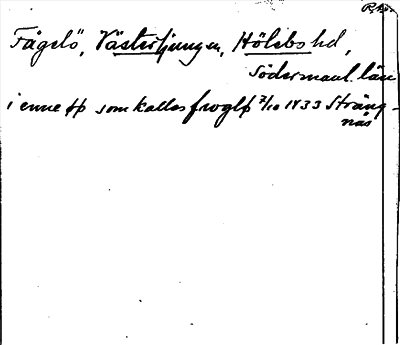 Fågelö, Västerljungen, Hölebo hd,
Södermanl. län
i enne øø som kallas froglø 7/10 1433 Sträng-
näs